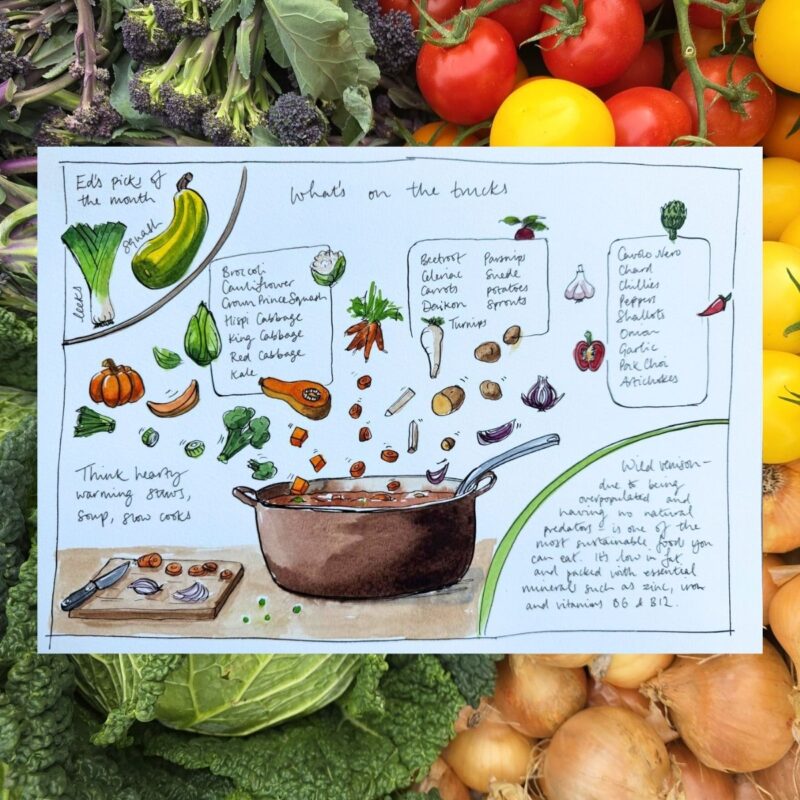 Ed's picks of
the month
squash
leeks
What's on the trucks
Broccoli
Cauliflower
Crown Prince Squash
Hispi Cabbage
King Cabbage
Red Cabbage
Kale
Beetroot
Celeriac
Carrots
Daikon
Parsnips
Swede
potatoes
Sprouts
Turnips
Cavolo Nero
Chard
Chillies
Peppers
Shallots
Onion
Garlic
Pak Choi
Artichokes
Think hearty
warming stews,
soup, slow cooks
Wild venison -
due to being
overpopulated and
having no natural
predators - is one of the
most sustainable foods you
can eat. It's low in fat
and packed with essential
minerals such as zinc, iron
and vitamins B6 & B12.